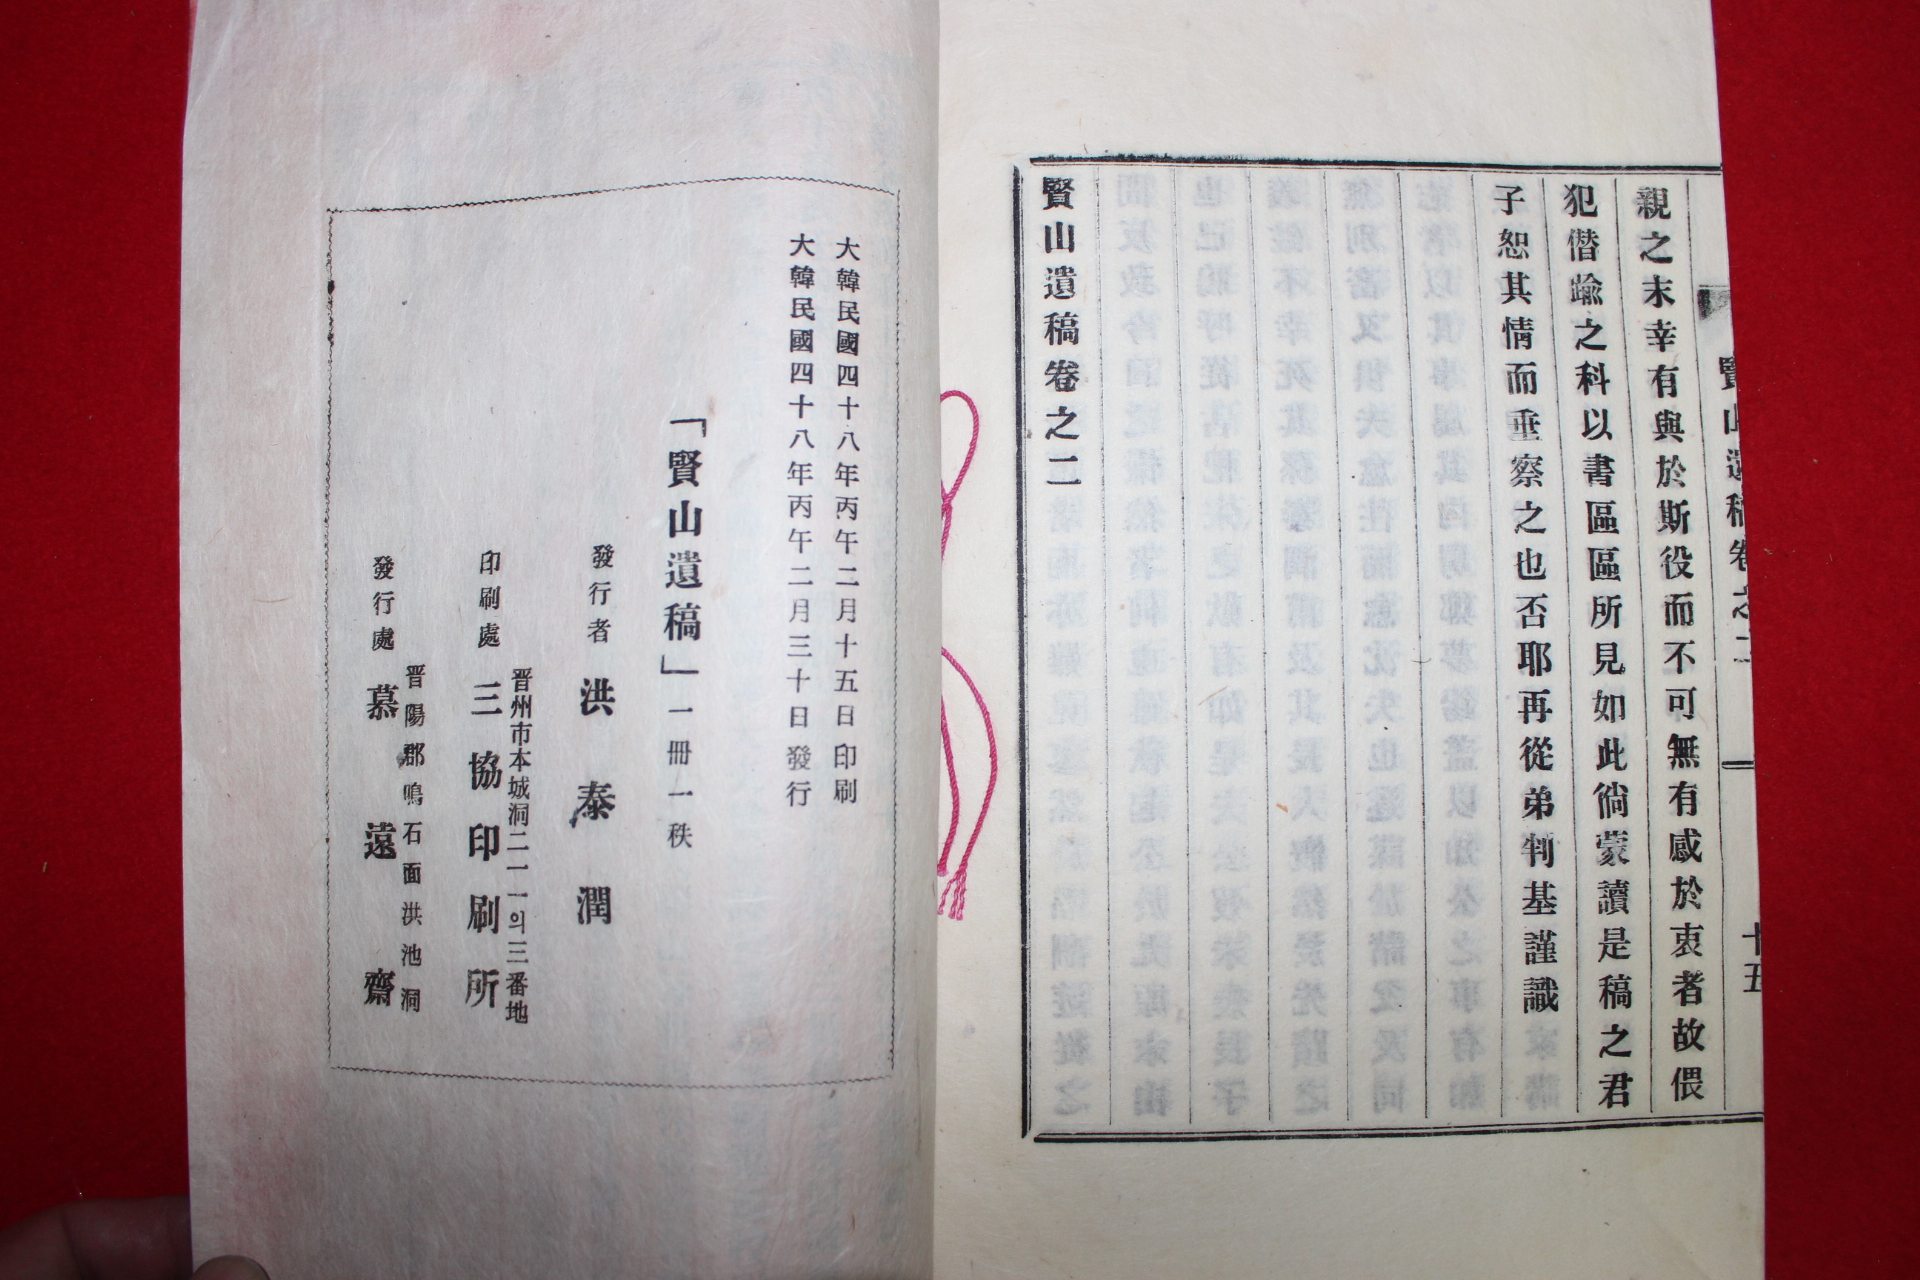 賢山遺稿卷之二
十五
親之末幸有與於斯役而不可無有感於衷者故偎
犯僭踰之科以書區區所見如此倘蒙讀是稿之君
子恕其情而垂察之也否耶再從弟判基謹識
賢山遺稿卷之二
大韓民國四十八年丙午二月十五日印刷
大韓民國四十八年丙午二月三十日發行
「賢山遺稿」一冊一秩
發行者 洪泰潤
晋州市本城洞二一一의三番地
印刷處 三協印刷所
晋陽郡鳴石面洪池洞
發行處 慕遠齋